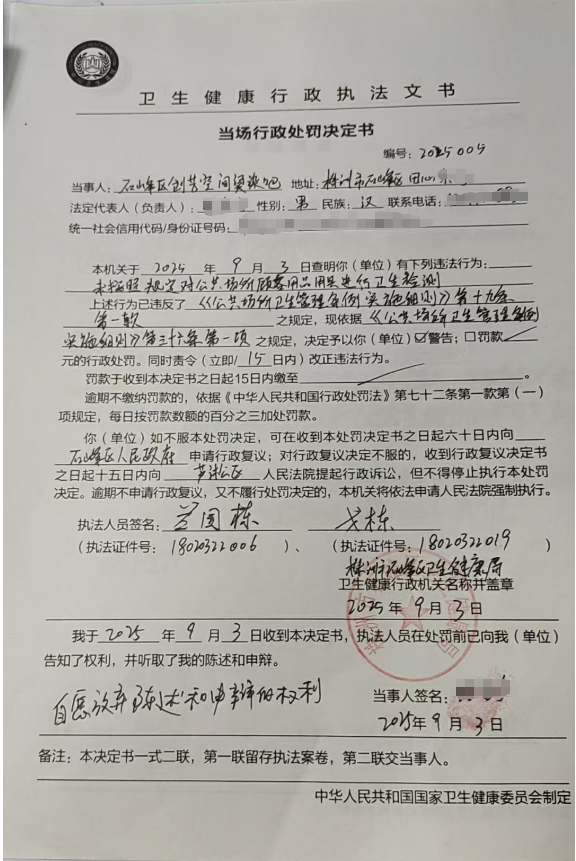 卫生健康行政执法文书
当场行政处罚决定书
编号：2025005
当事人：石峰区创艺空间烫染吧 地址：株洲市石峰区田心
法定代表人（负责人）： 性别：男 民族：汉 联系电话：
统一社会信用代码/身份证号码：
本机关于 2025 年 9 月 3 日查明你（单位）有下列违法行为：
未按照规定对公共场所顾客用品用具进行卫生检测
上述行为已违反了《公共场所卫生管理条例实施细则》第十九条
第一款 之规定，现依据《公共场所卫生管理条例
实施细则》第三十六条第一项 之规定，决定予以你（单位）☑警告；□罚款
元的行政处罚。同时责令（立即/ 15 日内）改正违法行为。
罚款于收到本决定书之日起15日内缴至 。
逾期不缴纳罚款的，依据《中华人民共和国行政处罚法》第七十二条第一款第（一）
项规定，每日按罚款数额的百分之三加处罚款。
你（单位）如不服本处罚决定，可在收到本处罚决定书之日起六十日内向
石峰区人民政府 申请行政复议；对行政复议决定不服的，收到行政复议决定书
之日起十五日内向 芦淞区 人民法院提起行政诉讼，但不得停止执行本处罚
决定。逾期不申请行政复议，又不履行处罚决定的，本机关将依法申请人民法院强制执行。
执法人员签名：兰国栋 戈栋
（执法证件号：18020322006 ）、 （执法证件号：18020322019 ）
株洲市石峰区卫生健康局
卫生健康行政机关名称并盖章
2025年 9 月 3 日
我于 2025 年 9 月 3 日收到本决定书，执法人员在处罚前已向我（单位）
告知了权利，并听取了我的陈述和申辩。
自愿放弃陈述和申辩的权利
当事人签名：
2025年 9 月 3 日
备注：本决定书一式二联，第一联留存执法案卷，第二联交当事人。
中华人民共和国国家卫生健康委员会制定